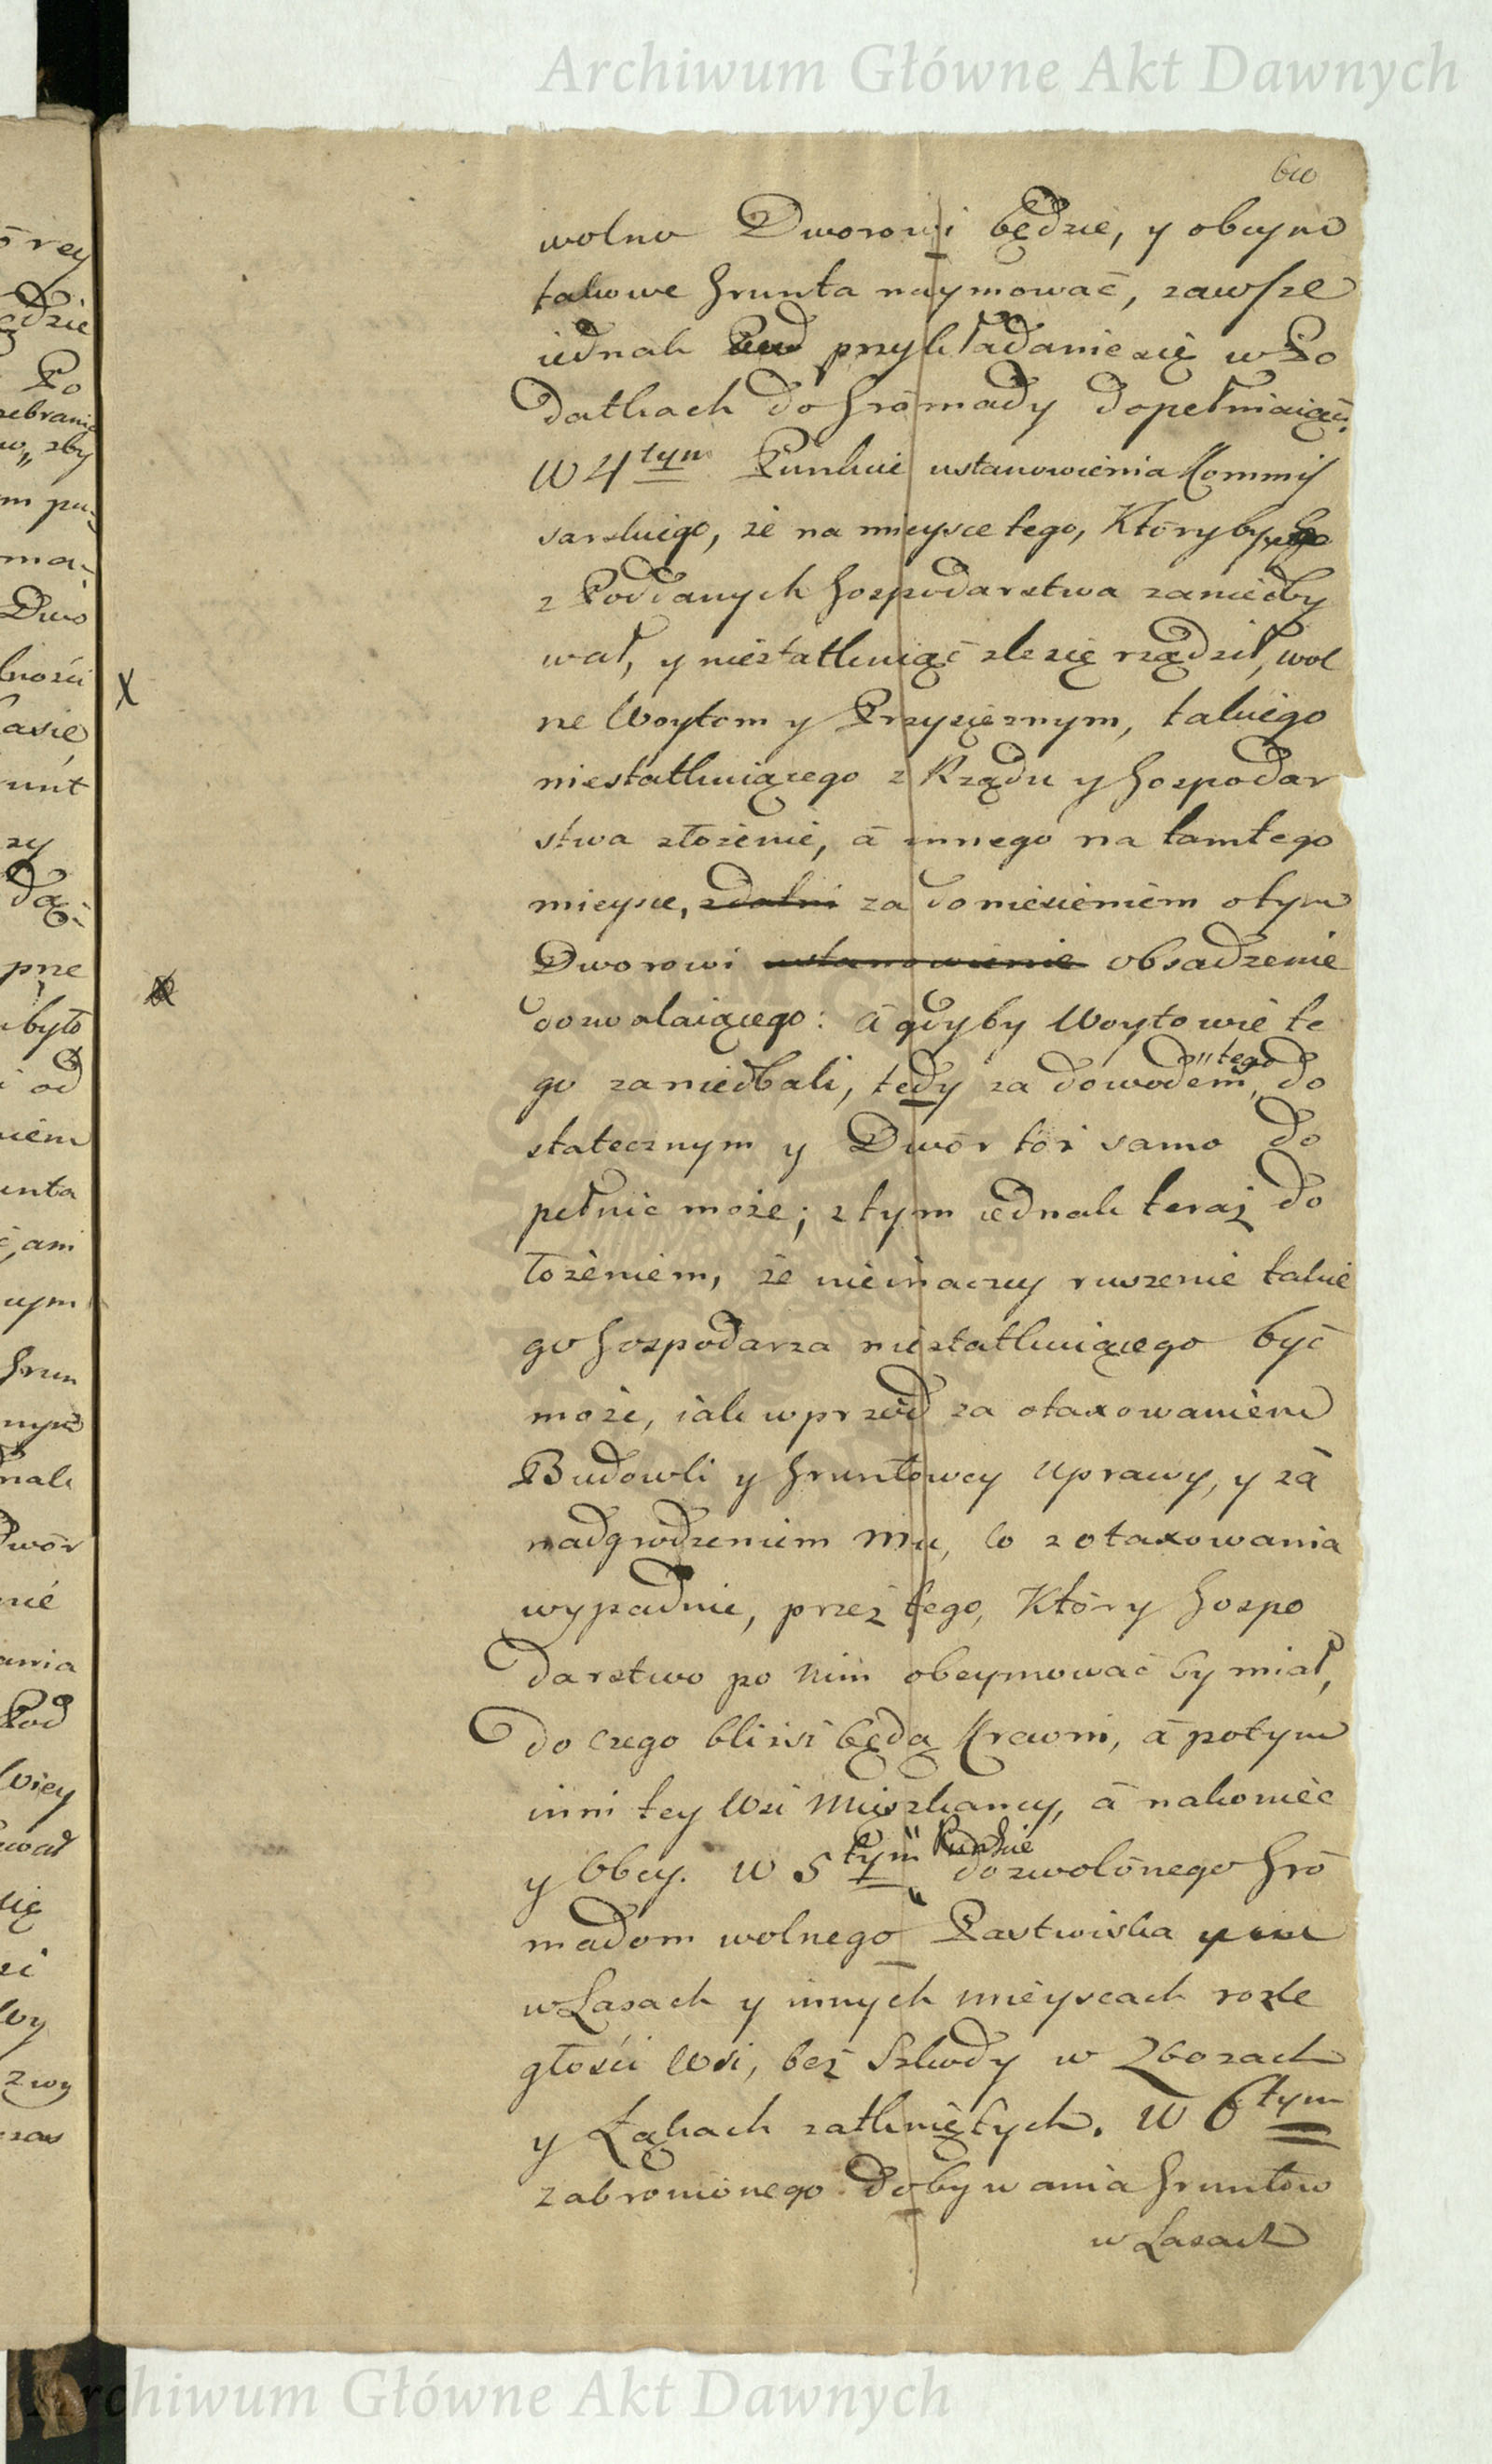 Archiwum Główne Akt Dawnych
wolno Dworowi będzie, y obcym
takowe Grunta naymować, zawsze
iednak przykładanie się w Po
datkach do Gromady dopełniaiąć.
W 4tym Punkcie ustanowienia Kommis
sarskiego, że na mieysce tego, Któryby
z Poddanych Gospodarstwa zaniedby
wał, y niestatkuiąc zle się rządził, wol
ne Woytom y Przysięznym, takiego
niestatkuiącego z Rządu y Gospodar
stwa złożenie, á innego na tamtego
mieysce, zdatni za doniesieniem otym
Dworowi ustanowienie obsadzenie
dozwalaiącego: á gdyby Woytowie te
go zaniedbali, tedy za dowodem tego do
statecznym y Dwór toż samo do
pełnić może; z tym iednak teraz do
łożeniem, że nieinaczey ruszenie takie
go Gospodarza niestatkuiącego być
może, iak wprzód za otaxowaniem
Budowli y Gruntowey uprawy, y zá
nadgrodzeniem mu, co z otaxowania
wypadnie, przez tego, Który Gospo
darstwo po nim obeymować by miał,
do czego bliżsi będą Krewni, á potym
inni tey Wsi Mieszkancy, á nakoniec
y Obcy. W 5tym Punkcie dozwolonego Gro
madom wolnego Pastwiska
w Lasach y innych mieyscach rozle
głości Wsi, bez Szkody w Zbozach
y Łąkach zatkniętych. W 6tym
zabronionego dobywania Gruntów
w Lasach
Archiwum Główne Akt Dawnych